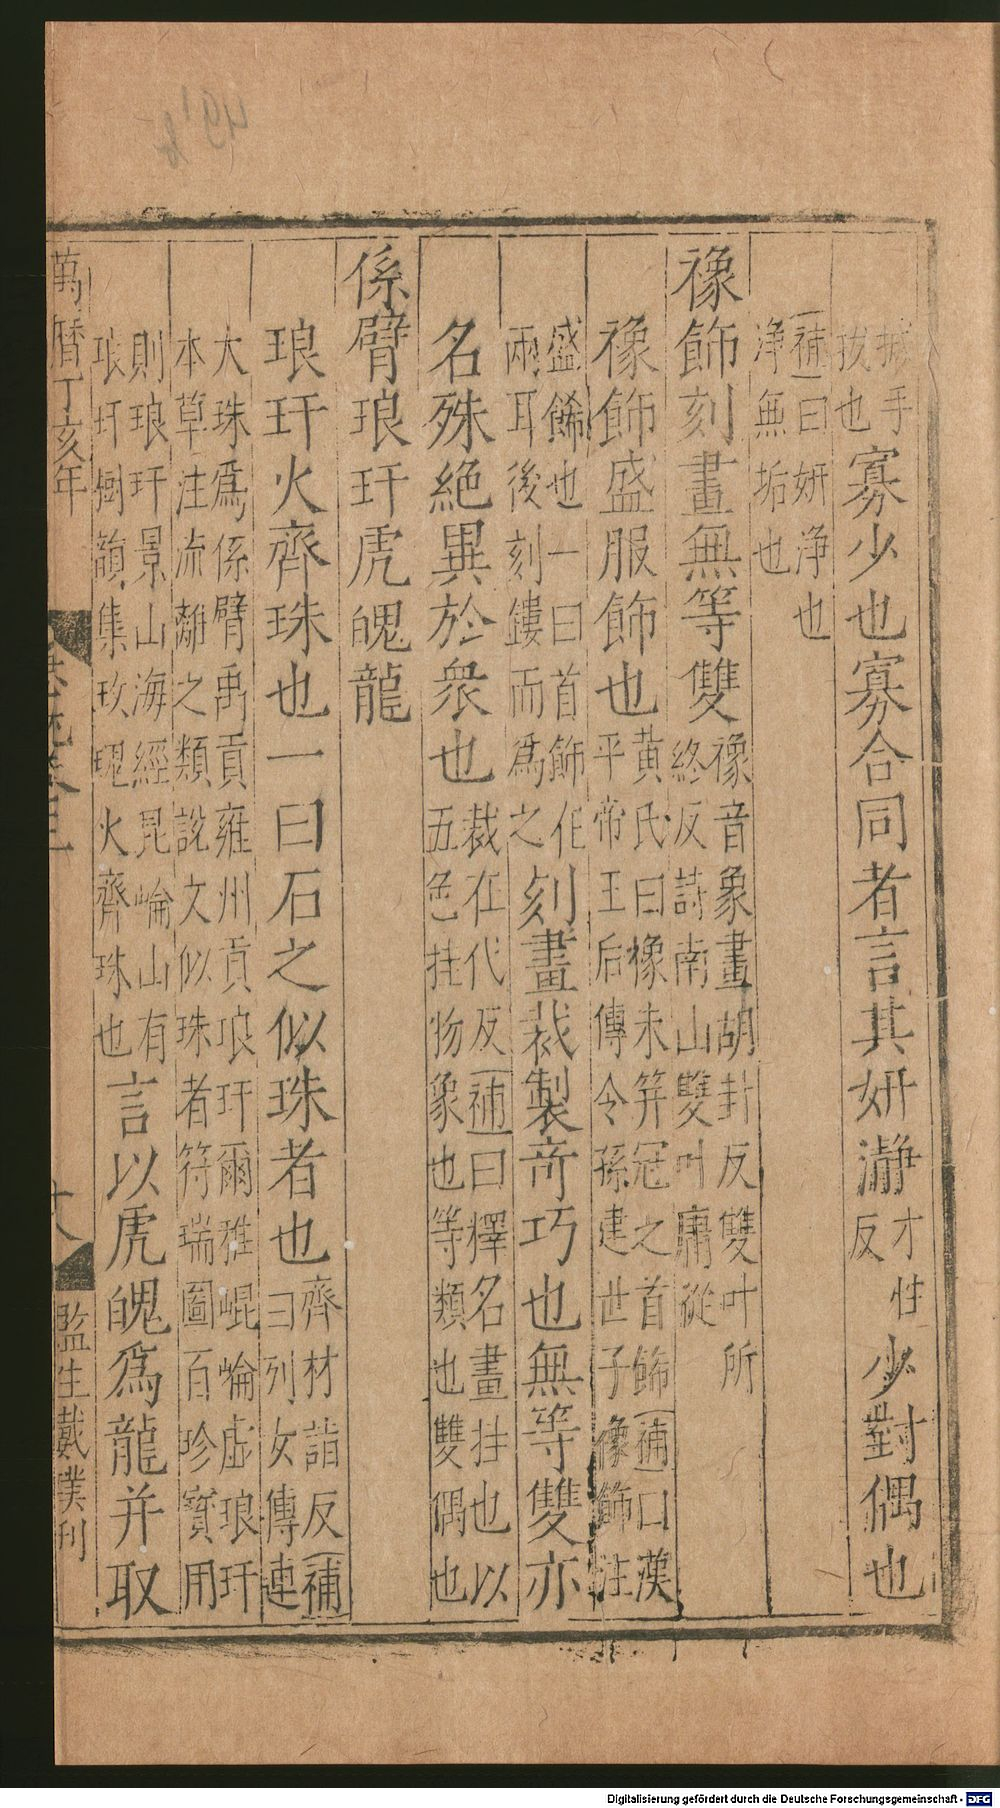 掋手
抜也
寡少也寡合同者言其妍瀞
才性
反
少對偶也
補曰妍净也
净無垢也
襐飾刻畫無等雙
襐音象畫胡卦反雙叶所
終反詩南山雙叶庸從
襐飾盛服飾也
黄氏曰襐未笄冠之首餙補曰漢
平帝王后傳令孫建世子襐飾注
盛餙也一曰首飾在
兩耳後刻鏤而爲之
刻畫裁製奇巧也無等雙亦
名殊絶異於衆也
裁在代反補曰釋名畫挂也以
五色挂物象也等類也雙偶也
係臂琅玕虎魄龍
琅玕火齊珠也一曰石之似珠者也
齊材詣反補
曰列女傳連
大珠爲係臂禹貢雍州貢琅玕爾雅崐崘虛琅玕
本草注流離之類說文似珠者符瑞圖百珍寳用
則琅玕景山海經昆崘山有
琅玕樹韻集玫瑰火齊珠也
言以虎魄爲龍并取
萬曆丁亥年
十八
監生戴㒒刊
Digitalisierung gefördert durch die Deutsche Forschungsgemeinschaft - DFG